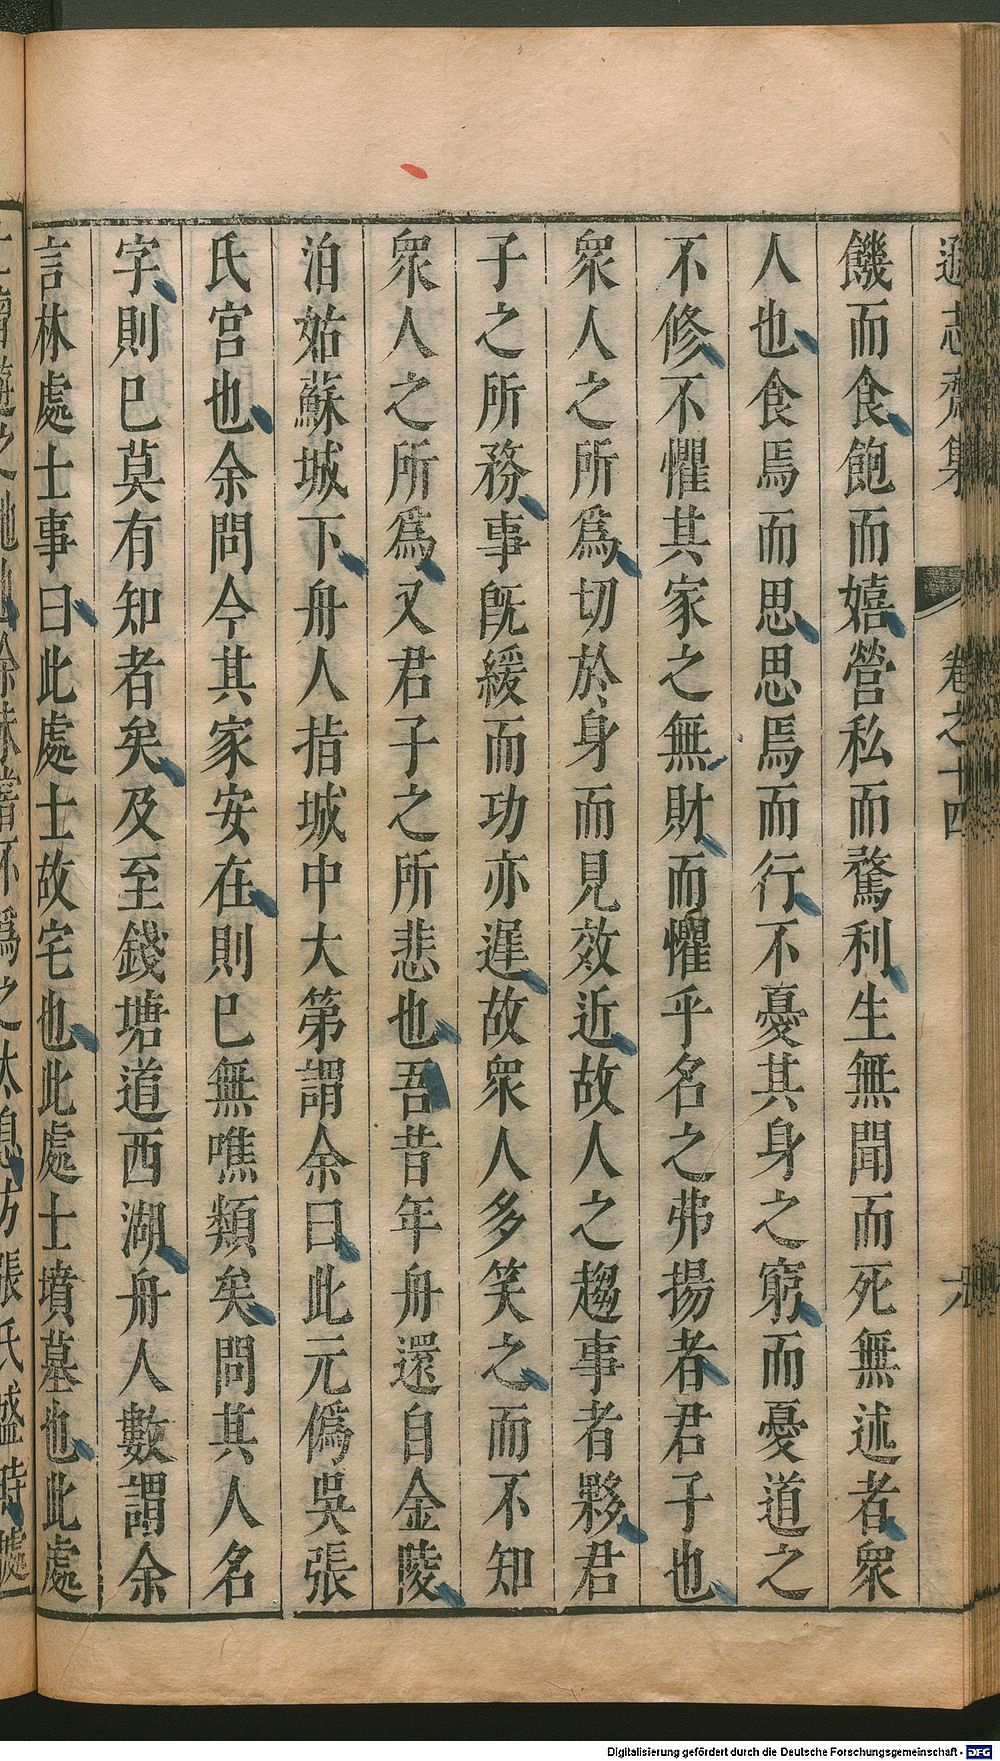 遜志齋集 卷之十四
饑而食飽而嬉營私而騖利生無聞而死無述者衆
人也食焉而思思焉而行不憂其身之窮而憂道之
不修不懼其家之無財而懼乎名之弗揚者君子也
衆人之所爲切於身而見效近故人之趨事者夥君
子之所務事旣緩而功亦遲故衆人多笑之而不知
衆人之所爲又君子之所悲也吾昔年舟還自金陵
泊姑蘇城下舟人指城中大第謂余曰此元僞吳張
氏宮也余問今其家安在則巳無噍類矣問其人名
字則巳莫有知者矣及至錢塘道西湖舟人數謂余
言林處士事曰此處士故宅也此處士墳墓也此處
Digitalisierung gefördert durch die Deutsche Forschungsgemeinschaft - DFG